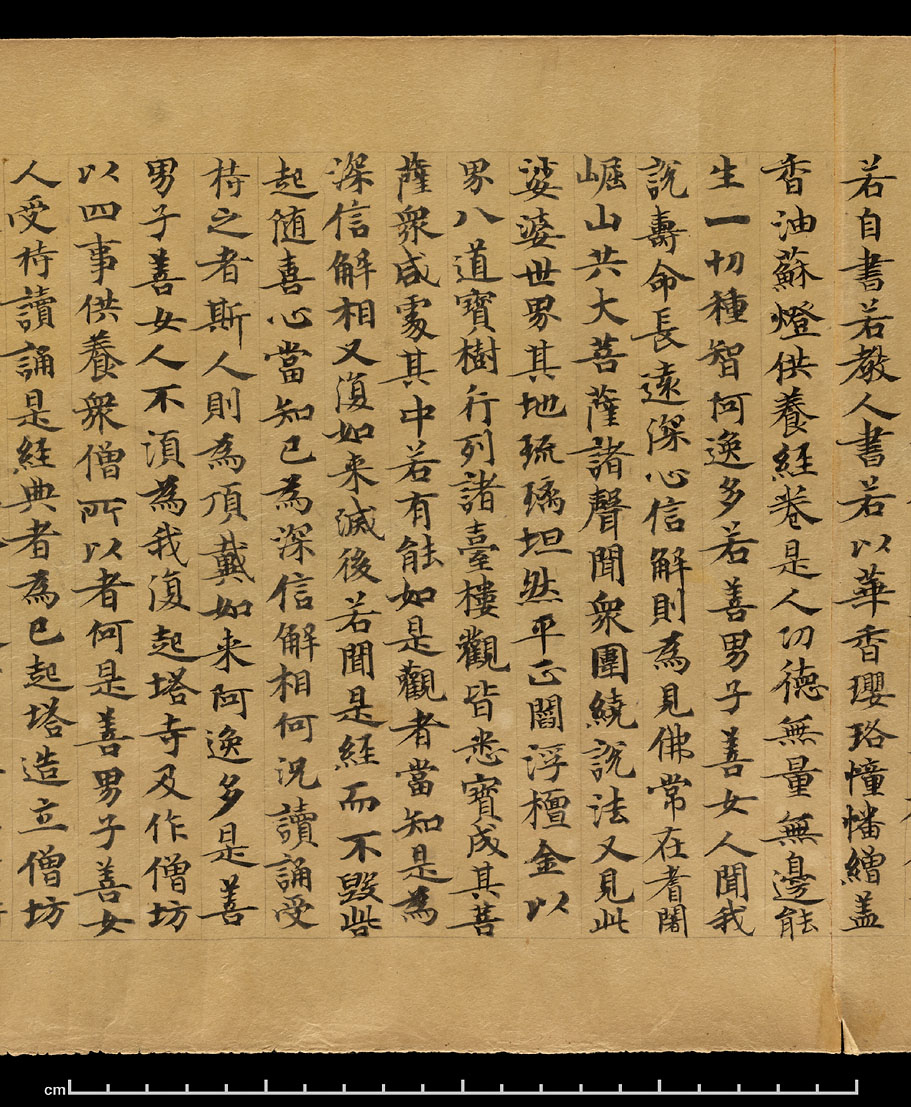 若自書若教人書若以華香瓔珞幢幡繒盖
香油蘇燈供養經卷是人功德無量無邊能
生一切種智阿逸多若善男子善女人聞我
說壽命長遠深心信解則為見佛常在耆闍
崛山共大菩薩諸聲聞眾圍繞說法又見此
娑婆世界其地琉璃坦然平正閻浮檀金以
界八道寶樹行列諸臺樓觀皆悉寶成其菩
薩眾咸處其中若有能如是觀者當知是為
深信解相又復如来滅後若聞是經而不毀呰
起随喜心當知已為深信解相何況讀誦受
持之者斯人則為頂戴如来阿逸多是善
男子善女人不湏為我復起塔寺及作僧坊
以四事供養眾僧所以者何是善男子善女
人受持讀誦是經典者為已起塔造立僧坊
cm